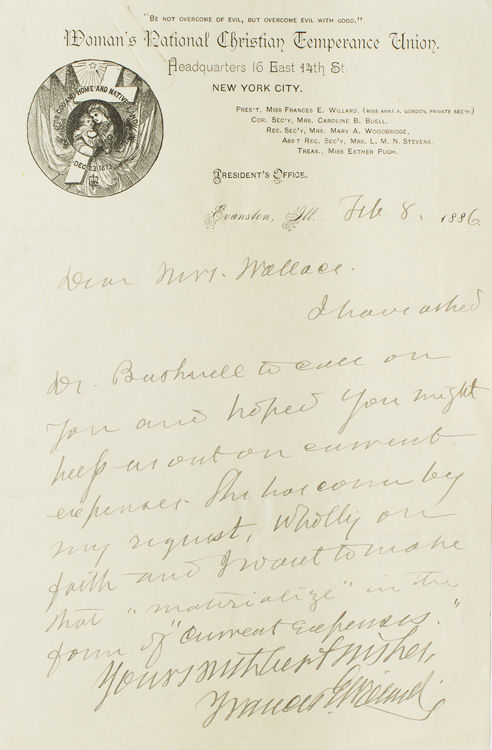 "Be not overcome of evil, but overcome evil with good."
Woman's National Christian Temperance Union.
Headquarters 16 East 14th St.
NEW YORK CITY.
Pres't, Miss Frances E. Willard, (Miss Anna A. Gordon, Private Sec'y.)
Cor. Sec'y, Mrs. Caroline B. Buell.
Rec. Sec'y, Mrs. Mary A. Woodbridge,
Ass't Rec. Sec'y, Mrs. L. M. N. Stevens,
Treas., Miss Esther Pugh.
FOR GOD AND HOME AND NATIVE LAND
DEC. 23 1873
President's Office.
Evanston, Ill. Feb. 8. 1886
Dear Mrs. Wallace.
I have asked
Dr. Bushnell to call on
you and hoped you might
help us out on current
expenses. She has come by
my request, wholly on
faith and I want to make
that "materialize" in the
form of "current expenses."
Yours with best wishes,
Frances E. Willard